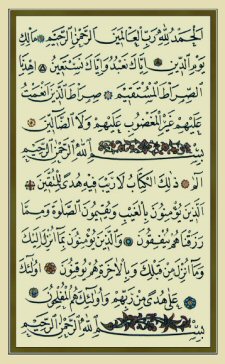 اَلْحَمْدُ لِلّٰهِ رَبِّ الْعَالَمِينَ الرَّحْمٰنِ الرَّحِيمِ مَالِكِ
يَوْمِ الدِّينِ اِيَّاكَ نَعْبُدُ وَاِيَّاكَ نَسْتَعِينُ اِهْدِنَا
الصِّرَاطَ الْمُسْتَقِيمَ صِرَاطَ الَّذِينَ اَنْعَمْتَ
عَلَيْهِمْ غَيْرِ الْمَغْضُوبِ عَلَيْهِمْ وَلَا الضَّالِّينَ
بِسْمِ اللّٰهِ الرَّحْمٰنِ الرَّحِيمِ
الٓمٓ ذٰلِكَ الْكِتَابُ لَا رَيْبَ فِيهِ هُدًى لِلْمُتَّقِينَ
الَّذِينَ يُؤْمِنُونَ بِالْغَيْبِ وَيُقِيمُونَ الصَّلٰوةَ وَمِمَّا
رَزَقْنَاهُمْ يُنْفِقُونَ وَالَّذِينَ يُؤْمِنُونَ بِمَا اُنْزِلَ اِلَيْكَ
وَمَا اُنْزِلَ مِنْ قَبْلِكَ وَبِالْاٰخِرَةِ هُمْ يُوقِنُونَ اُولٰئِكَ
عَلٰى هُدًى مِنْ رَبِّهِمْ وَاُولٰئِكَ هُمُ الْمُفْلِحُونَ
بِسْمِ اللّٰهِ الرَّحْمٰنِ الرَّحِيمِ